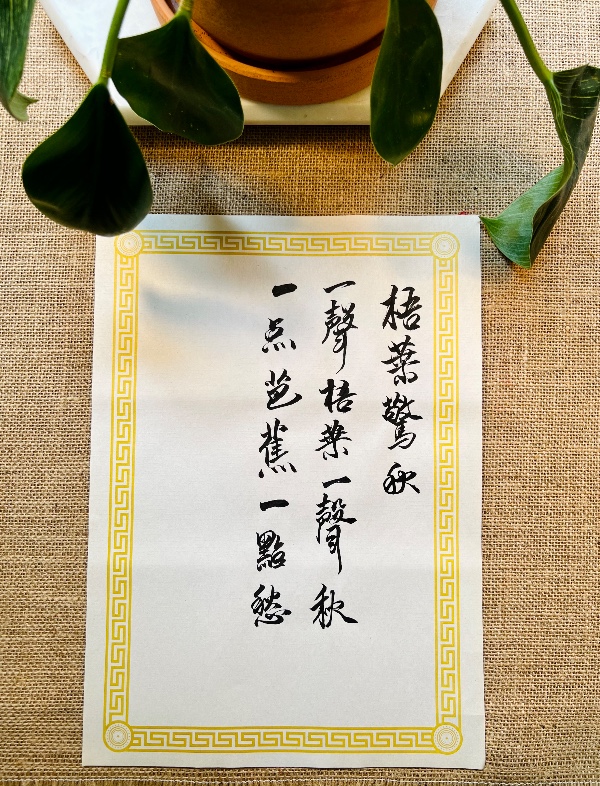 梧葉驚秋
一聲梧葉一聲秋
一点芭蕉一點愁